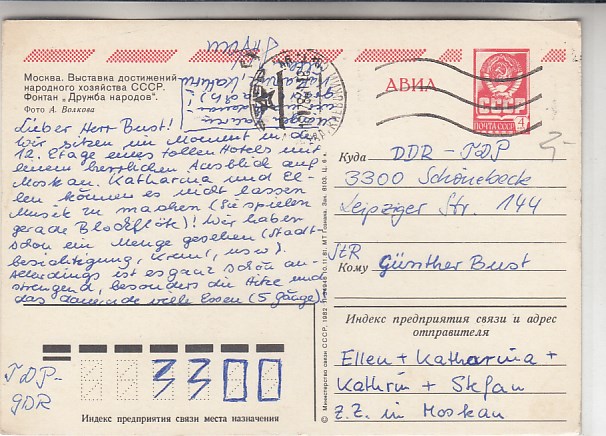 Москва. Выставка достижений
народного хозяйства СССР.
Фонтан „Дружба народов".
Фото А. Волкова
АВИА
СССР
ПОЧТА СССР
4
Lieber Herr Bust!
Wir sitzen im Moment in der
12. Etage eines tollen Hotels mit
einem herrlichen Ausblick auf
Moskau. Katharina und El-
len können es nicht lassen
Musik zu machen (Sie spielen
gerade Blockflöte)! Wir haben
schon ein Menge gesehen (Stadt-
besichtigung, Kreml, usw).
Allerdings ist es ganz schön an-
strengend, besonders die Hitze und
das dauernde viele Essen (5 Gänge).
Куда DDR-GDR
3300 Schönebeck
Leipziger Str. 144
StR
Кому Günther Bust
Индекс предприятия связи и адрес
отправителя
Ellen + Katharina +
Kathrin + Stefan
z.Z. in Moskau
3300
Индекс предприятия связи места назначения
© Министерство связи СССР, 1982